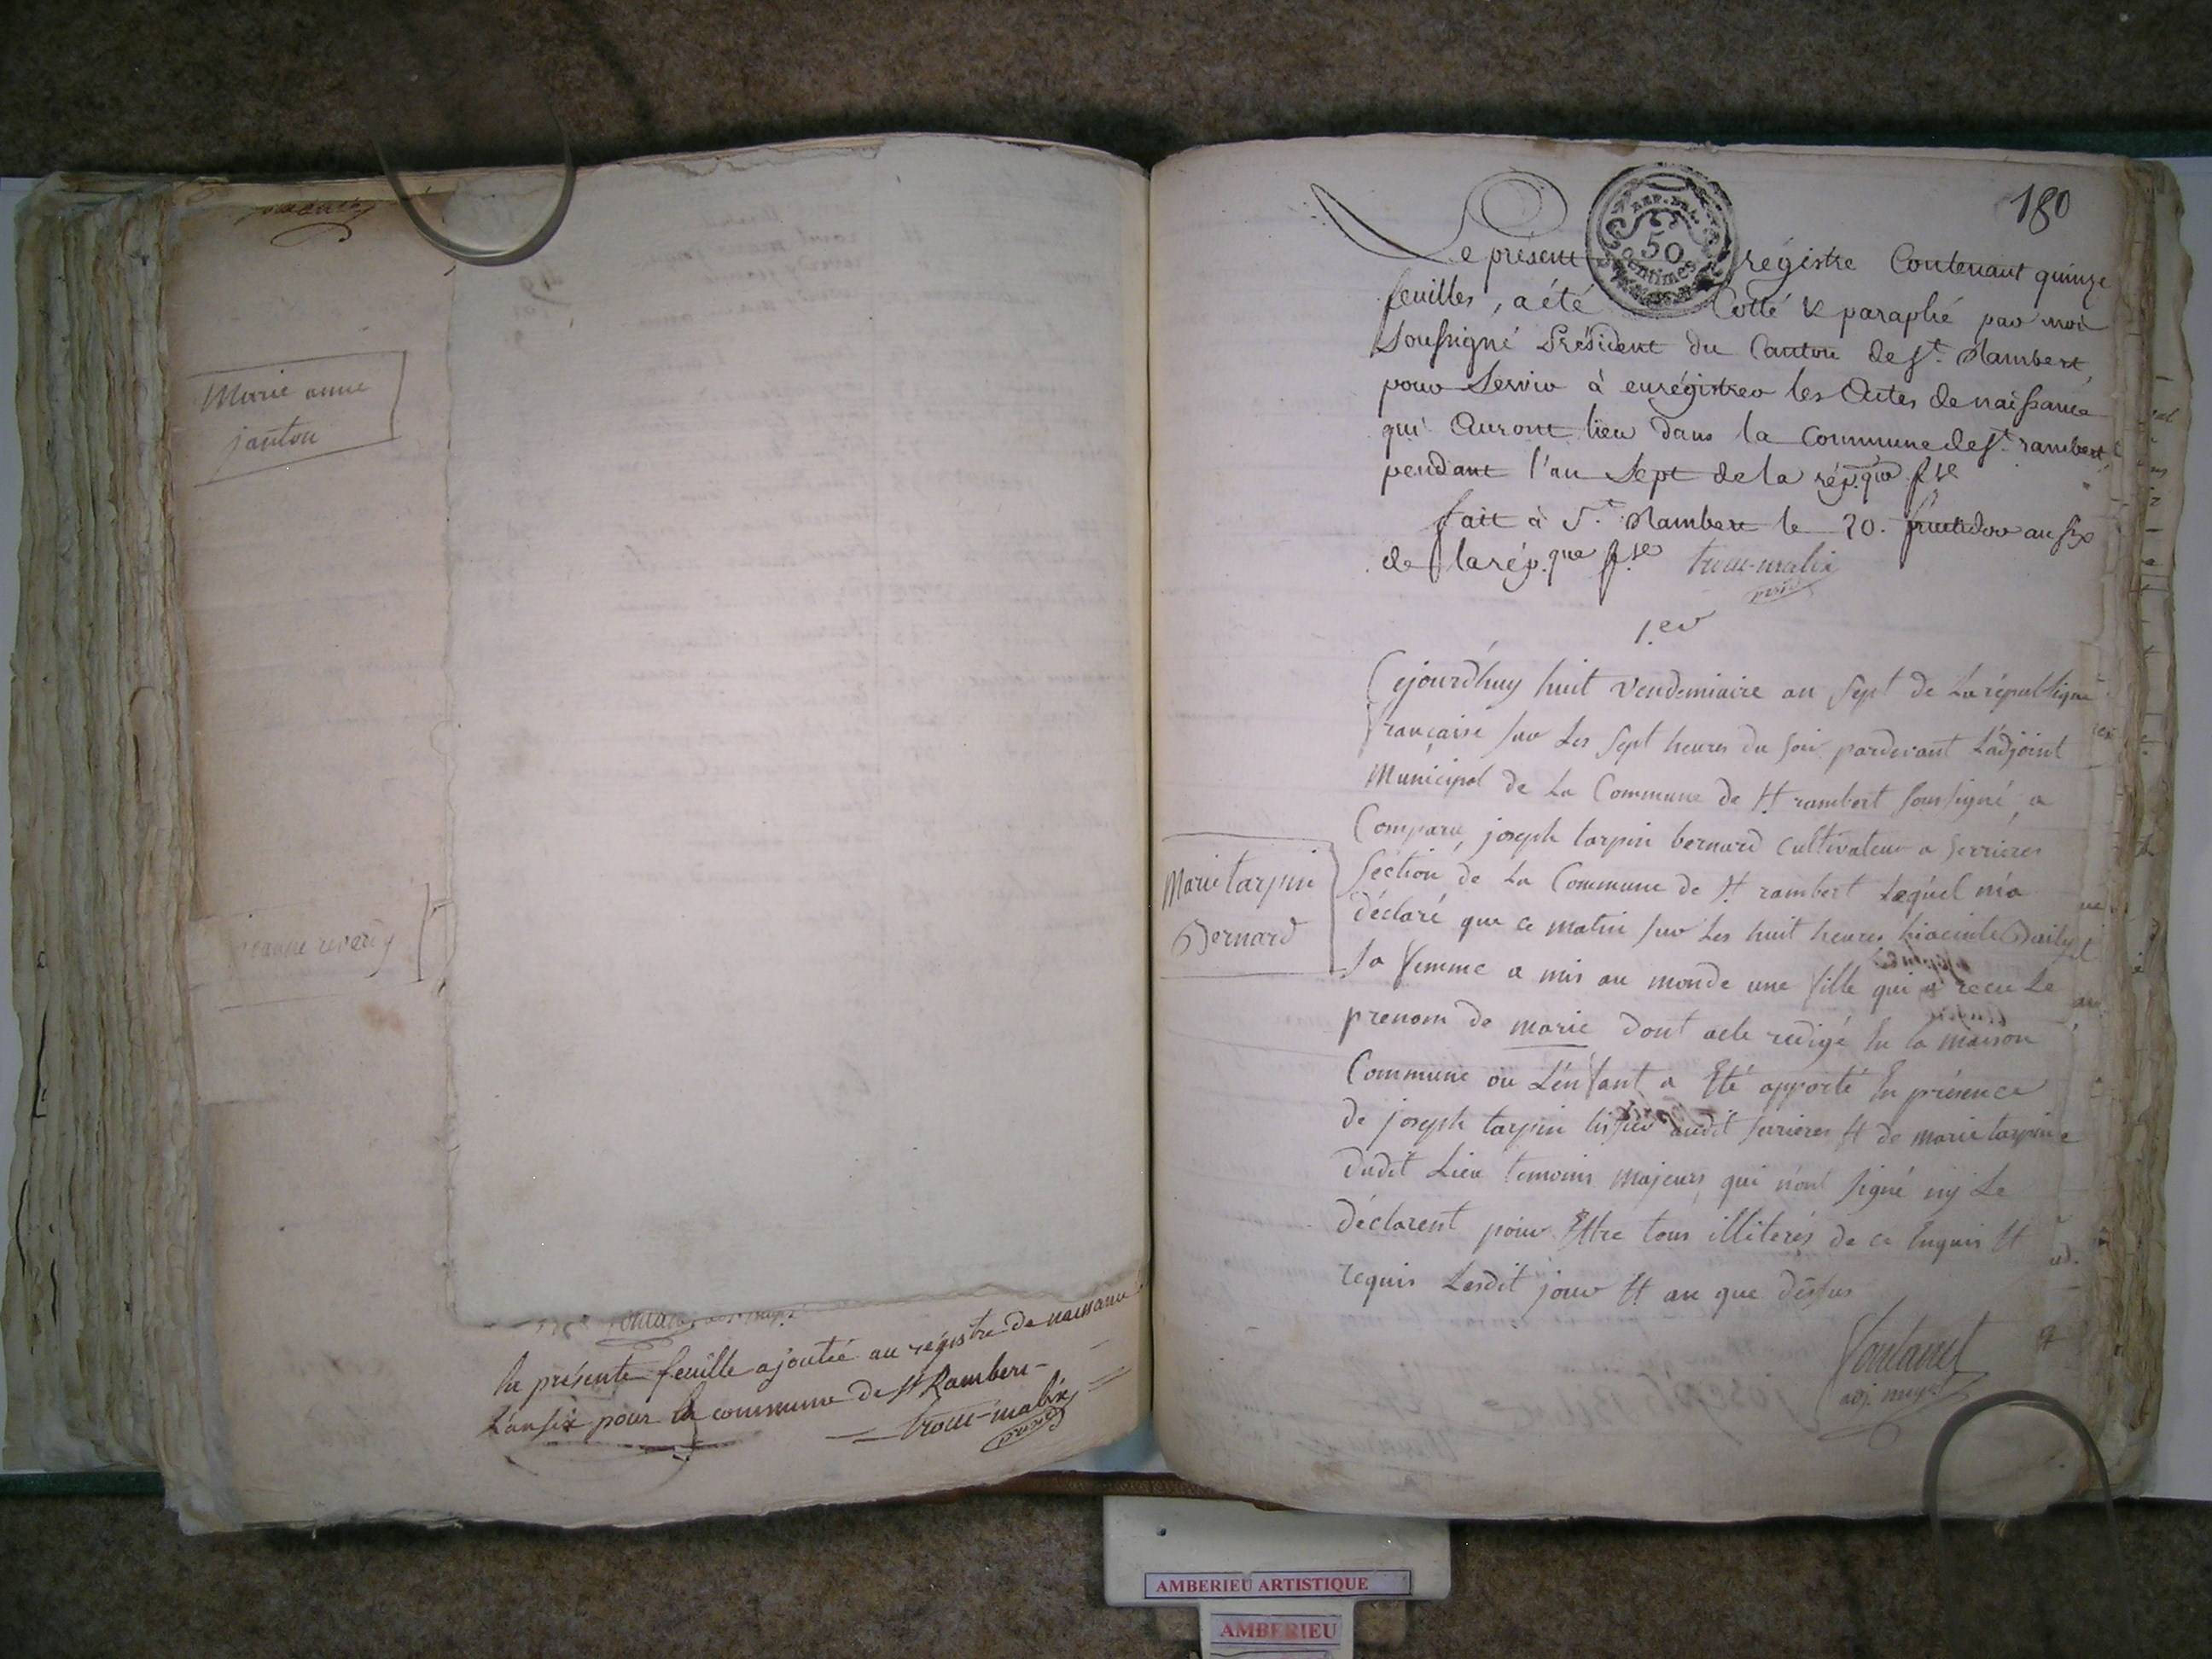 Marie anne
janton
jeanne reverdy
la présente feuille ajoutée au régistre de naissance
L'an six pour la commune de St Rambert
trocu-malix
180
REP. FRA.
50
centimes
Le présent régistre Contenant quinze
feuilles, a été Cotté & paraphé par moi
Soussigné Président du Canton de St. Rambert,
pour Servir à enrégistrer les Actes de naissance
qui Auront lieu dans la Commune de St. rambert
pendant l'an Sept de la rép.que fse
fait à St. Rambert le 20. fructidor an six
de la rép.que fse trocu-malix
1.er
Cejourd'huy huit vendemiaire an sept de La république
française sur Les sept heures du soir pardevant L'adjoint
Municipal de La Commune de St rambert soussigné, a
Comparu, joseph tarpin bernard cultivateur a serrieres
Section de La Commune de St rambert Lequel m'a
déclaré que ce matin sur Les huit heures hiacinte
sa femme a mis au monde une fille qui a recu Le
prenom de marie dont acte redigé En la maison
Commune ou L'enfant a Eté apporté En présence
de joseph tarpin audit serrieres Et de marie tarpin
dudit Lieu temoins majeurs qui n'ont signé ny Le
déclarent pour Etre tous illiterés de ce Enquis Et
requis Lesdit jour Et an que dessus
Marie tarpin
Bernard
Fontanel
adj. mupl
AMBERIEU ARTISTIQUE
AMBERIEU